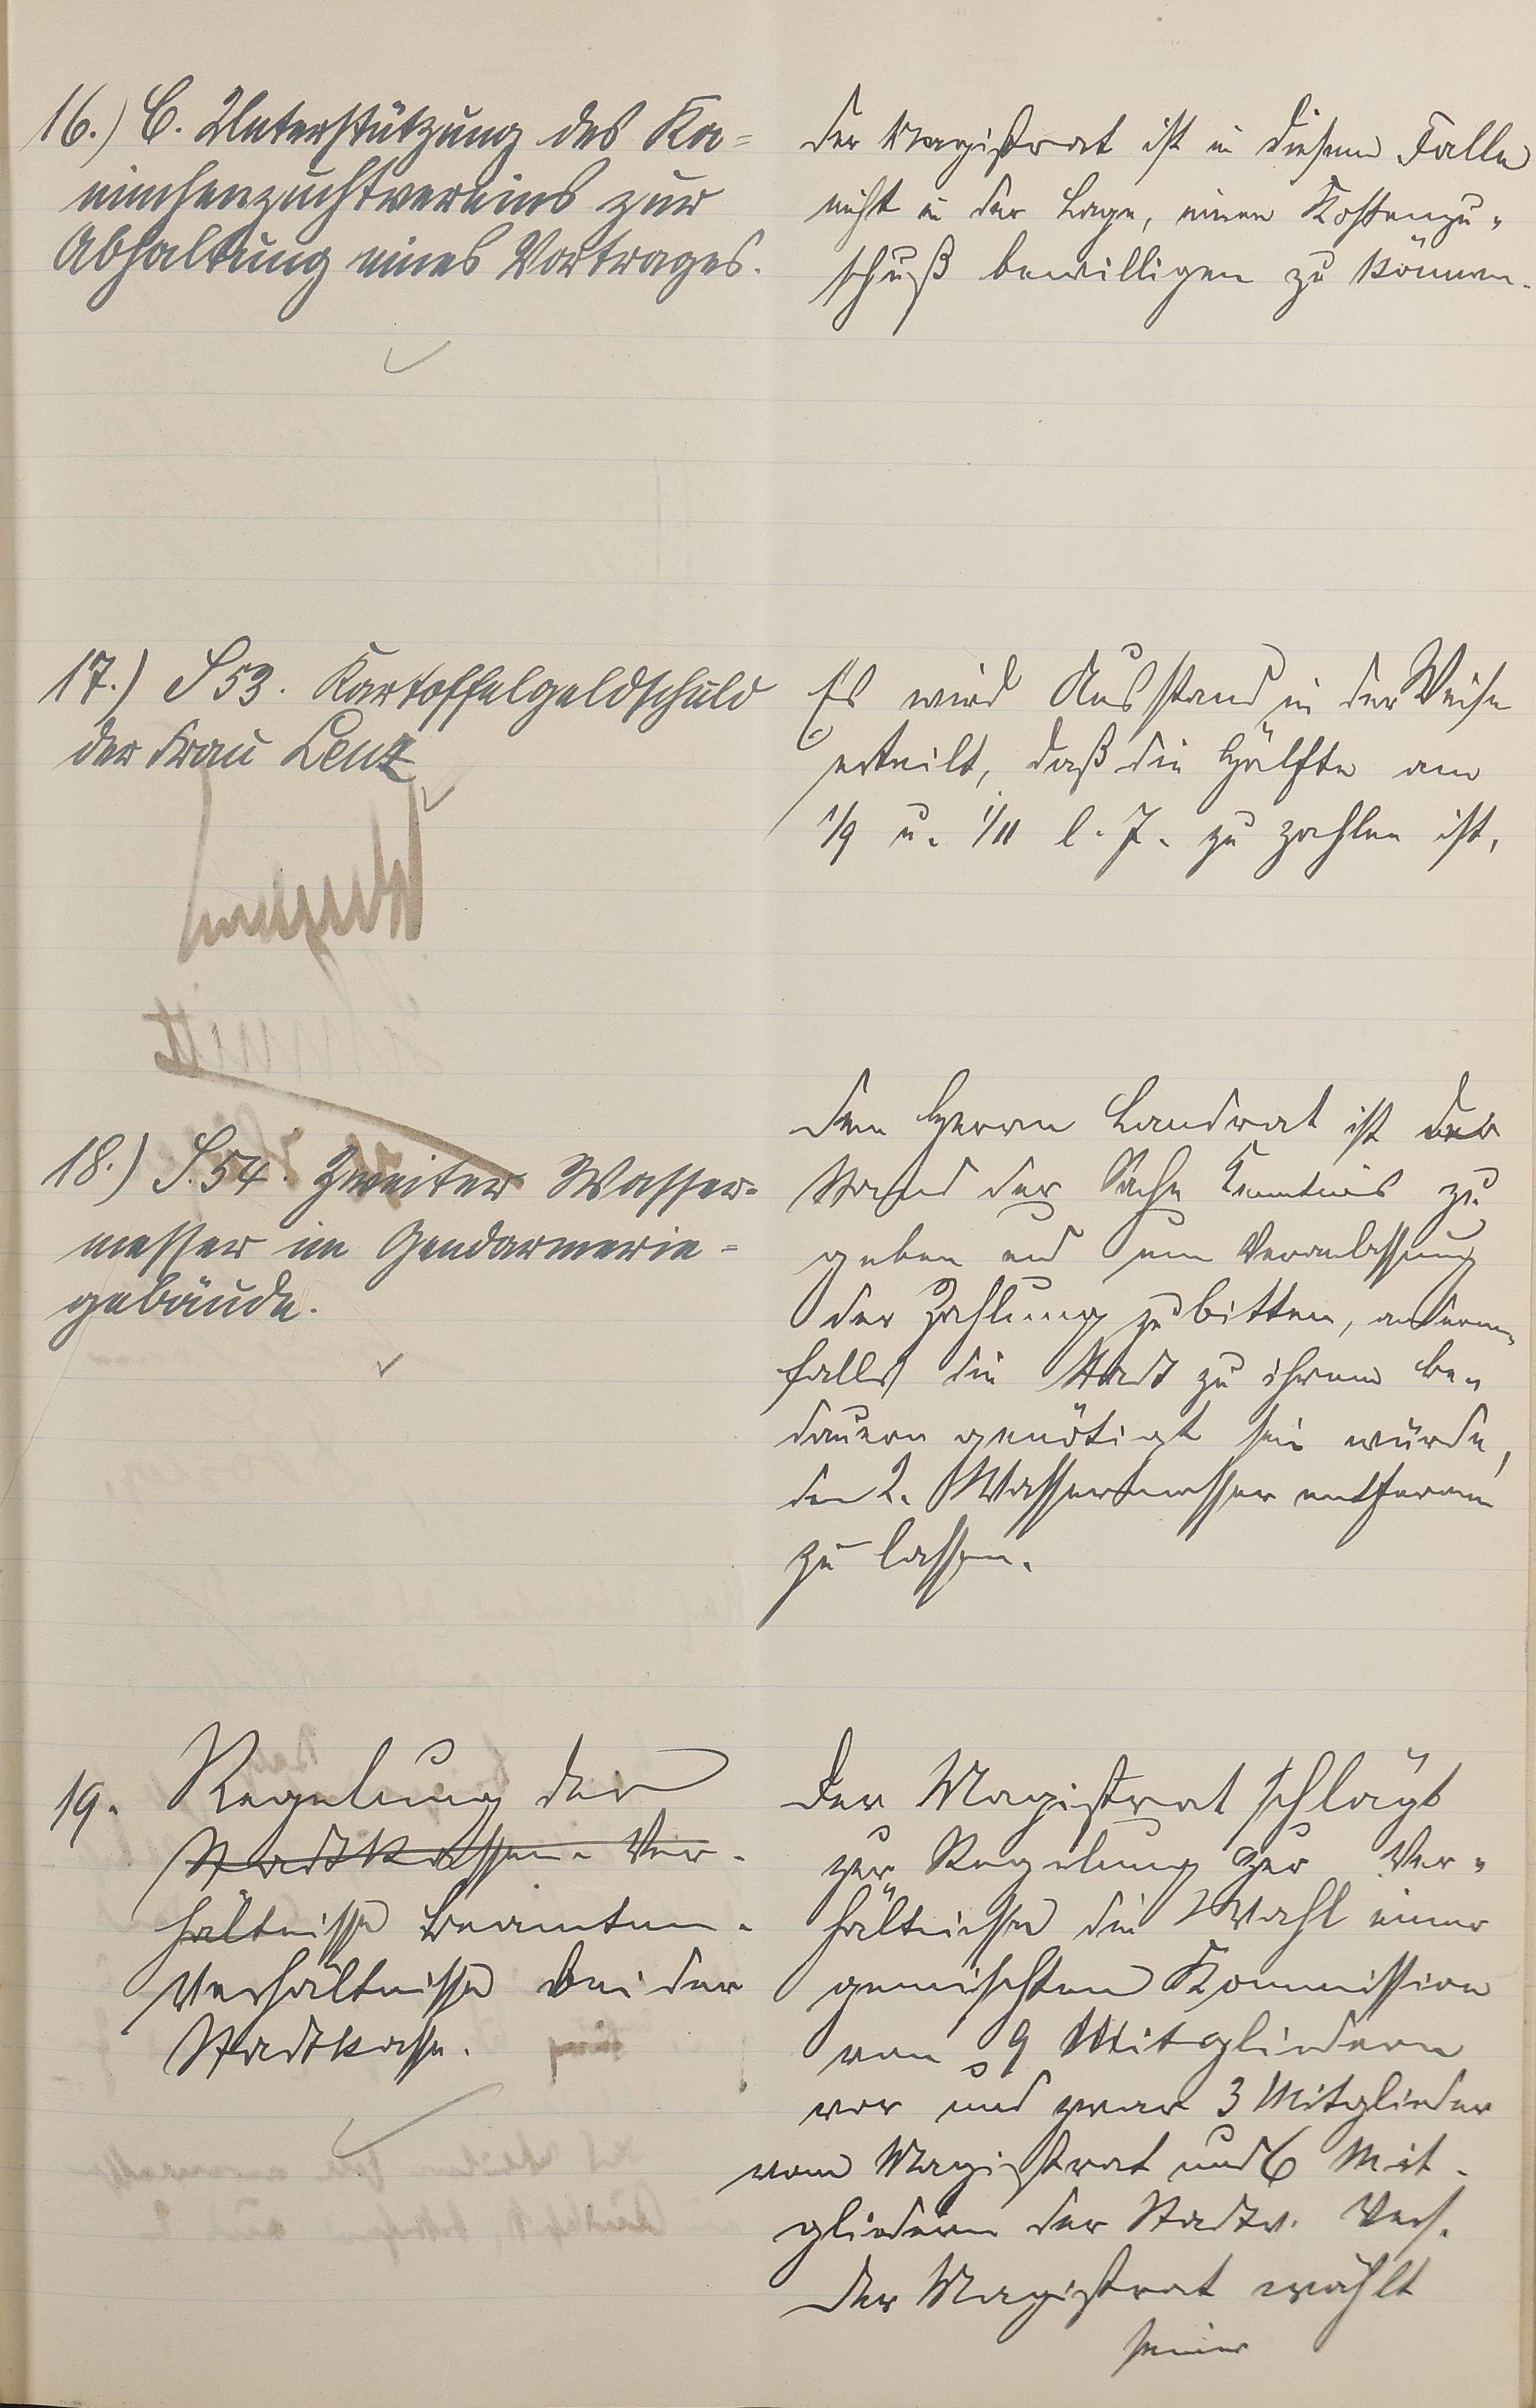 16.) C. Unterstützung des Ka=
ninchenzuchtvereins zur
Abhaltung eines Vortrages.
Der Magistrat ist in diesem Falle
nicht in der Lage, einen Kostenzu-
schuß bewilligen zu können.
17.) S 53. Kartoffelgeldschuld
der Frau Lenz
Es wird Ausstand in der Weise
erteilt, daß die Hälfte am
1/9 u. 1/11 l. J. zu zahlen ist.
18.) S. 54. Zweiter Wasser-
messer im Gendarmerie=
gebäude.
Dem Herrn Landrat ist der
Stand der Sache Kenntnis zu
geben und um Veranlassung
der Zahlung zu bitten, andern-
falls die Stadt zu ihrem Be-
dauern genötigt sein würde,
den 2. Wassermesser entfernen
zu lassen.
19. Regelung der
Stadtkassen-Ver-
hältnisse Beamten-
Verhältnisse bei der
Stadtkasse.
Der Magistrat schlägt
zur Regelung der Ver-
hältnisse die Wahl einer
gemischten Kommission
von 9 Mitgliedern
vor und zwar 3 Mitglieder
vom Magistrat und 6 Mit-
gliedern der Stadtv. Vers.
Der Magistrat wählt
seiner